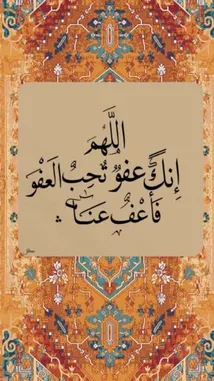 اللَّهُمَ
إِنَكَ عَفوٌ تُحِبُ العَفْوَ
فَأعْفُ عَنَا